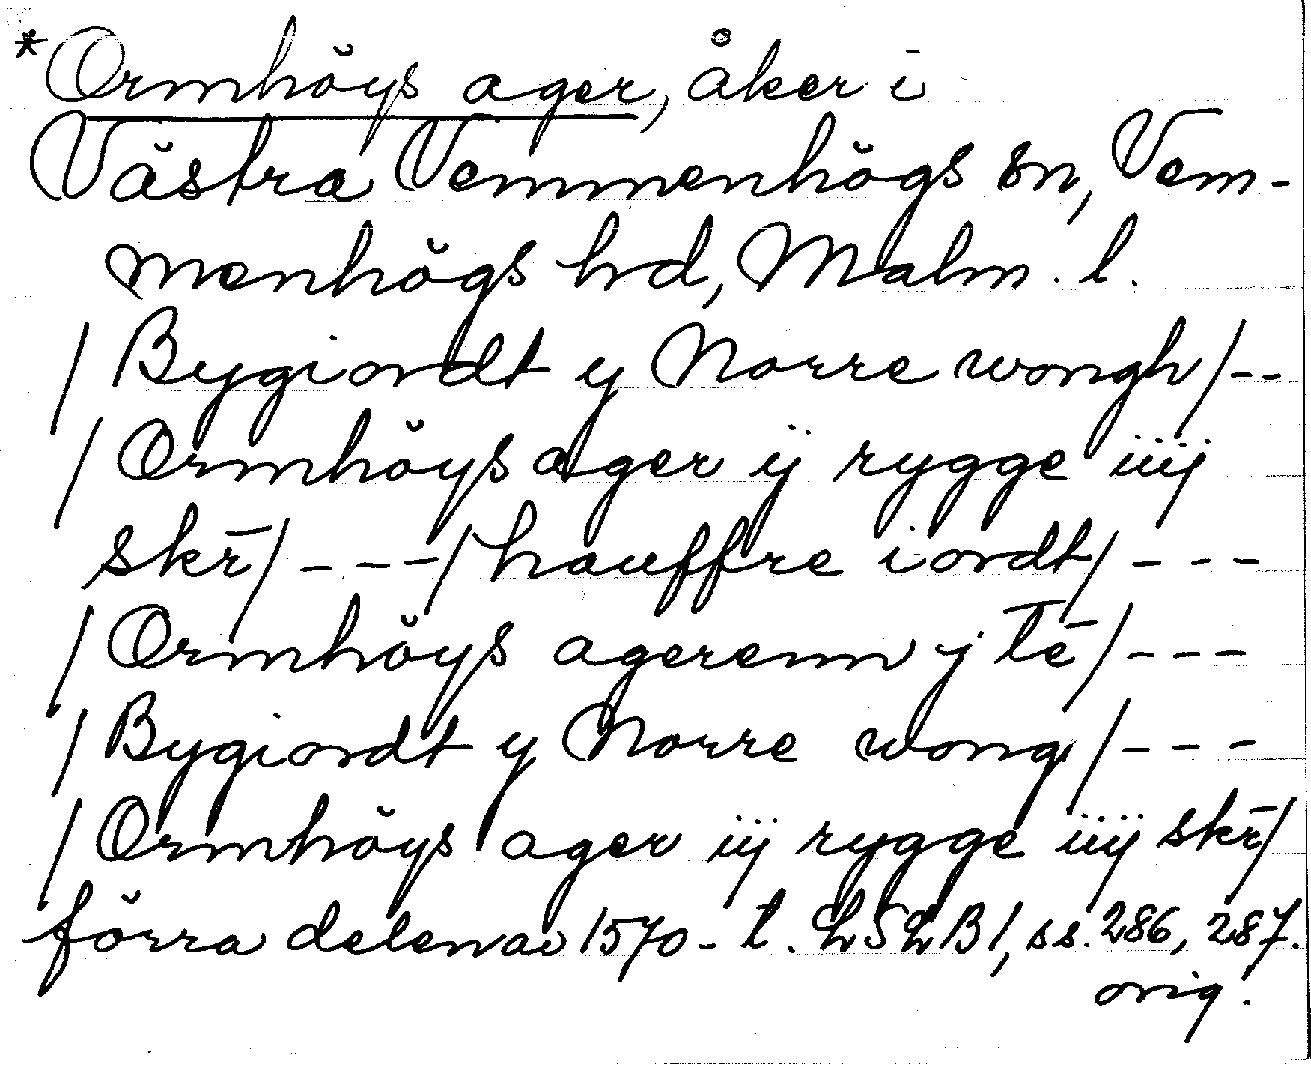 *Ormhöys ager, åker i
Västra Vemmenhögs sn, Vem-
menhögs hd, Malm. l.
/ Bygiordt y Norre wongh/--
/ Ormhöys ager ij rygge iiij
skr̄/ ---/ hauffre iordt/ ---
/ Ormhöys agerenn j tē/ ---
/ Bygiordt y Norre wong/ ---
/ Ormhöys ager iij rygge iiij skr̄/
förra delen av 1570-t. LSLB 1, ss. 286, 287.
orig.